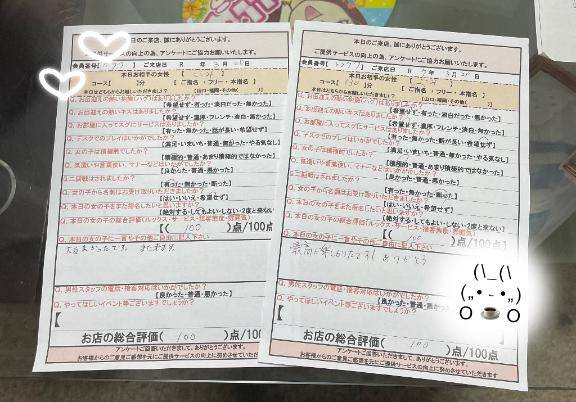 本日のご来店、誠にありがとうございます。
ご提供サービスの向上の為、アンケートにご協力お願いします。
会員番号【
】ご来店日 R 年 3月
本日お相手の女性【
コース【 】分 【 ご指名・フリー・本指名 】
【希望せず・有った・淡白だった・無かった】
【希望せず・濃厚・フレンチ・淡白・無かった】
【有った・無かった・話が長い・希望せず】
Q. アスクでのプレイはいかがでしたか?
【満足・いまいち・普通・無かった・やる気なし】
Q. 女の子は積極的でしたか?
【積極的・普通・あまり積極的ではなかった】
Q. 気遣いや言葉使い、マナーなどはいかがでしたか?
【良かった・普通・悪かった】
Q. 二回戦はされましたか?
【有った・無かった・断った】
Q. 女の子から名刺はお受け取りいただきましたか?
【はい・いいえ・希望せず】
Q. 本日の女の子をまた指名したいと思いますか?
【絶対する・してもよい・しない・2度と来ない】
Q. 本日の女の子の総合評価(ルックス・サービス・接客態度・雰囲気)
( 100 )点/100点
Q. 本日の女の子に一言やその他ご自由に記入下さい
Q. 男性スタッフの電話・接客対応はいかがでしたか?
【良かった・普通・悪かった】
Q. やってほしいイベント等ございますでしょうか?
【
お店の総合評価( 100 )点/100
アンケートご回答いただきまして、ありがとうございます。
お客様からのご意見ご感想を元にご提供サービスの向上に努めさせていただ
本日のご来店、誠にありがとうございます。
ご提供サービスの向上の為、アンケートにご協力お願いします。
会員番号【
】ご来店日 R 7年 3月
本日お相手の女性【
コース【
】分 【 ご指名・フリー・本指名 】
【希望せず・有った・淡白だった・無かった】
【希望せず・濃厚・フレンチ・淡白・無かった】
【有った・無かった・話が長い・希望せず】
Q. アスクでのプレイはいかがでしたか?
【満足・いまいち・普通・無かった・やる気なし】
Q. 女の子は積極的でしたか?
【積極的・普通・あまり積極的ではなかった】
Q. 気遣いや言葉使い、マナーなどはいかがでしたか?
【良かった・普通・悪かった】
Q. 二回戦はされましたか?
【有った・無かった・断った】
Q. 女の子から名刺はお受け取りいただきましたか?
【はい・いいえ・希望せず】
Q. 本日の女の子をまた指名したいと思いますか?
【絶対する・してもよい・しない・2度と来ない】
Q. 本日の女の子の総合評価(ルックス・サービス・接客態度・雰囲気)
【( 100 )点/100点
Q. 本日の女の子に一言やその他ご自由に記入下さい
ありがとう
Q. 男性スタッフの電話・接客対応はいかがでしたか?
【良かった・普通・悪かった】
Q. やってほしいイベント等ございますでしょうか?
【
お店の総合評価( 100 )点/100点
アンケートご回答いただきまして、ありがとうございます。
お客様からのご意見ご感想を元にご提供サービスの向上に努めさせていただきます